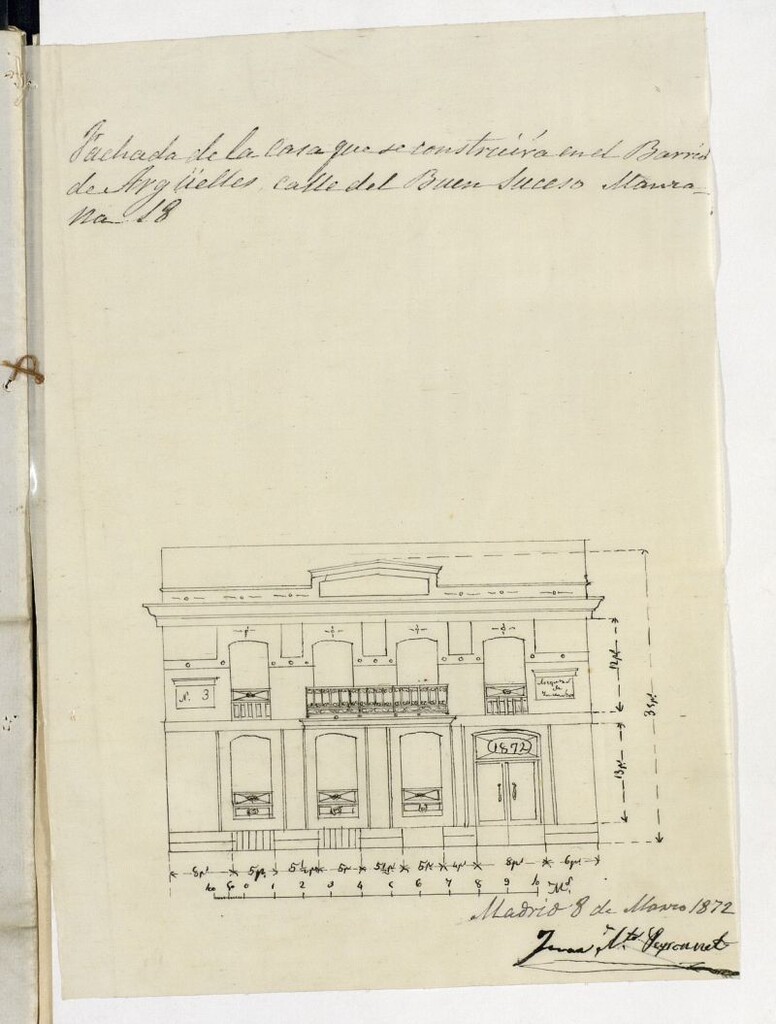 Fachada de la Casa que se construirá en el Barrio
de Argüelles, calle del Buen Suceso Manza-
na 18
12 p.s
35 p.s
N. 3
13 p.s
(1872)
5 p.s 5½ p.s 5 p.s 5½ p.s 5 p.s 4 p.s 8 p.s 6 p.s
0 1 2 3 4 5 6 7 8 9 10 M.s
Madrid 8 de Marzo 1872
Juan Peyronnet